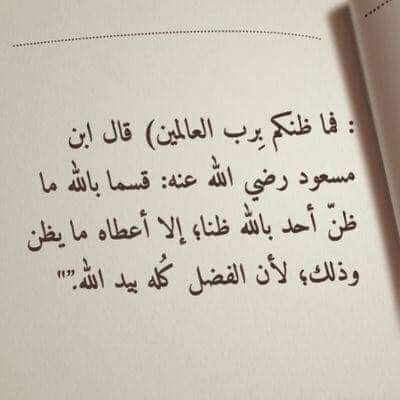 : فما ظنكم بِرب العالمين) قال ابن
مسعود رضي الله عنه: قسما بالله ما
ظنّ أحد بالله ظنا؛ إلا أعطاه ما يظن
وذلك؛ لأن الفضل كُله بيد الله.”"